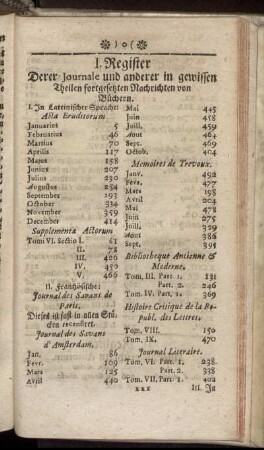 )o(
I. Register
Derer Journale und anderer in gewissen
Theilen fortgesetzten Nachrichten von
Büchern.
I. In Lateinischer Sprache:
Acta Eruditorum
Januarius 5
Februarius 46
Martius 70
Aprilis 117
Majus 158
Junius 207
Julius 230
Augustus 254
September 293
October 334
November 359
December 414
Supplementa Actorum
Tomi VI. Sectio I. 61
II. 78
III. 426
IV. 450
V. 466
II. Frantzösische:
Journal des Savans de
Paris.
Dieses ist fast in allen Stü-
cken recensirt.
Journal des Savans
d'Amsterdam.
Jan. 86
Fevr. 109
Mars 125
Avril 440
Mai 445
Juin 458
Juill. 459
Aout 464
Sept. 469
Octob. 404
Memoires de Trevoux.
Janv. 492
Fevr. 477
Mars 198
Avril 204
Mai 478
Juin 275
Juill. 363
Aout 386
Sept. 391
Bibliotheque Antienne &
Moderne.
Tom. III. Part. 1. 131
Part. 2. 246
Tom. IV. Part. 1. 369
Histoire Critique de la Re-
publ. des Lettres.
Tom. VIII. 150
Tom. IX. 470
Journal Literaire.
Tom. VI. Part. 1. 238.
Part. 2. 338
Tom. VII. Part. 1. 402
xxx III. In